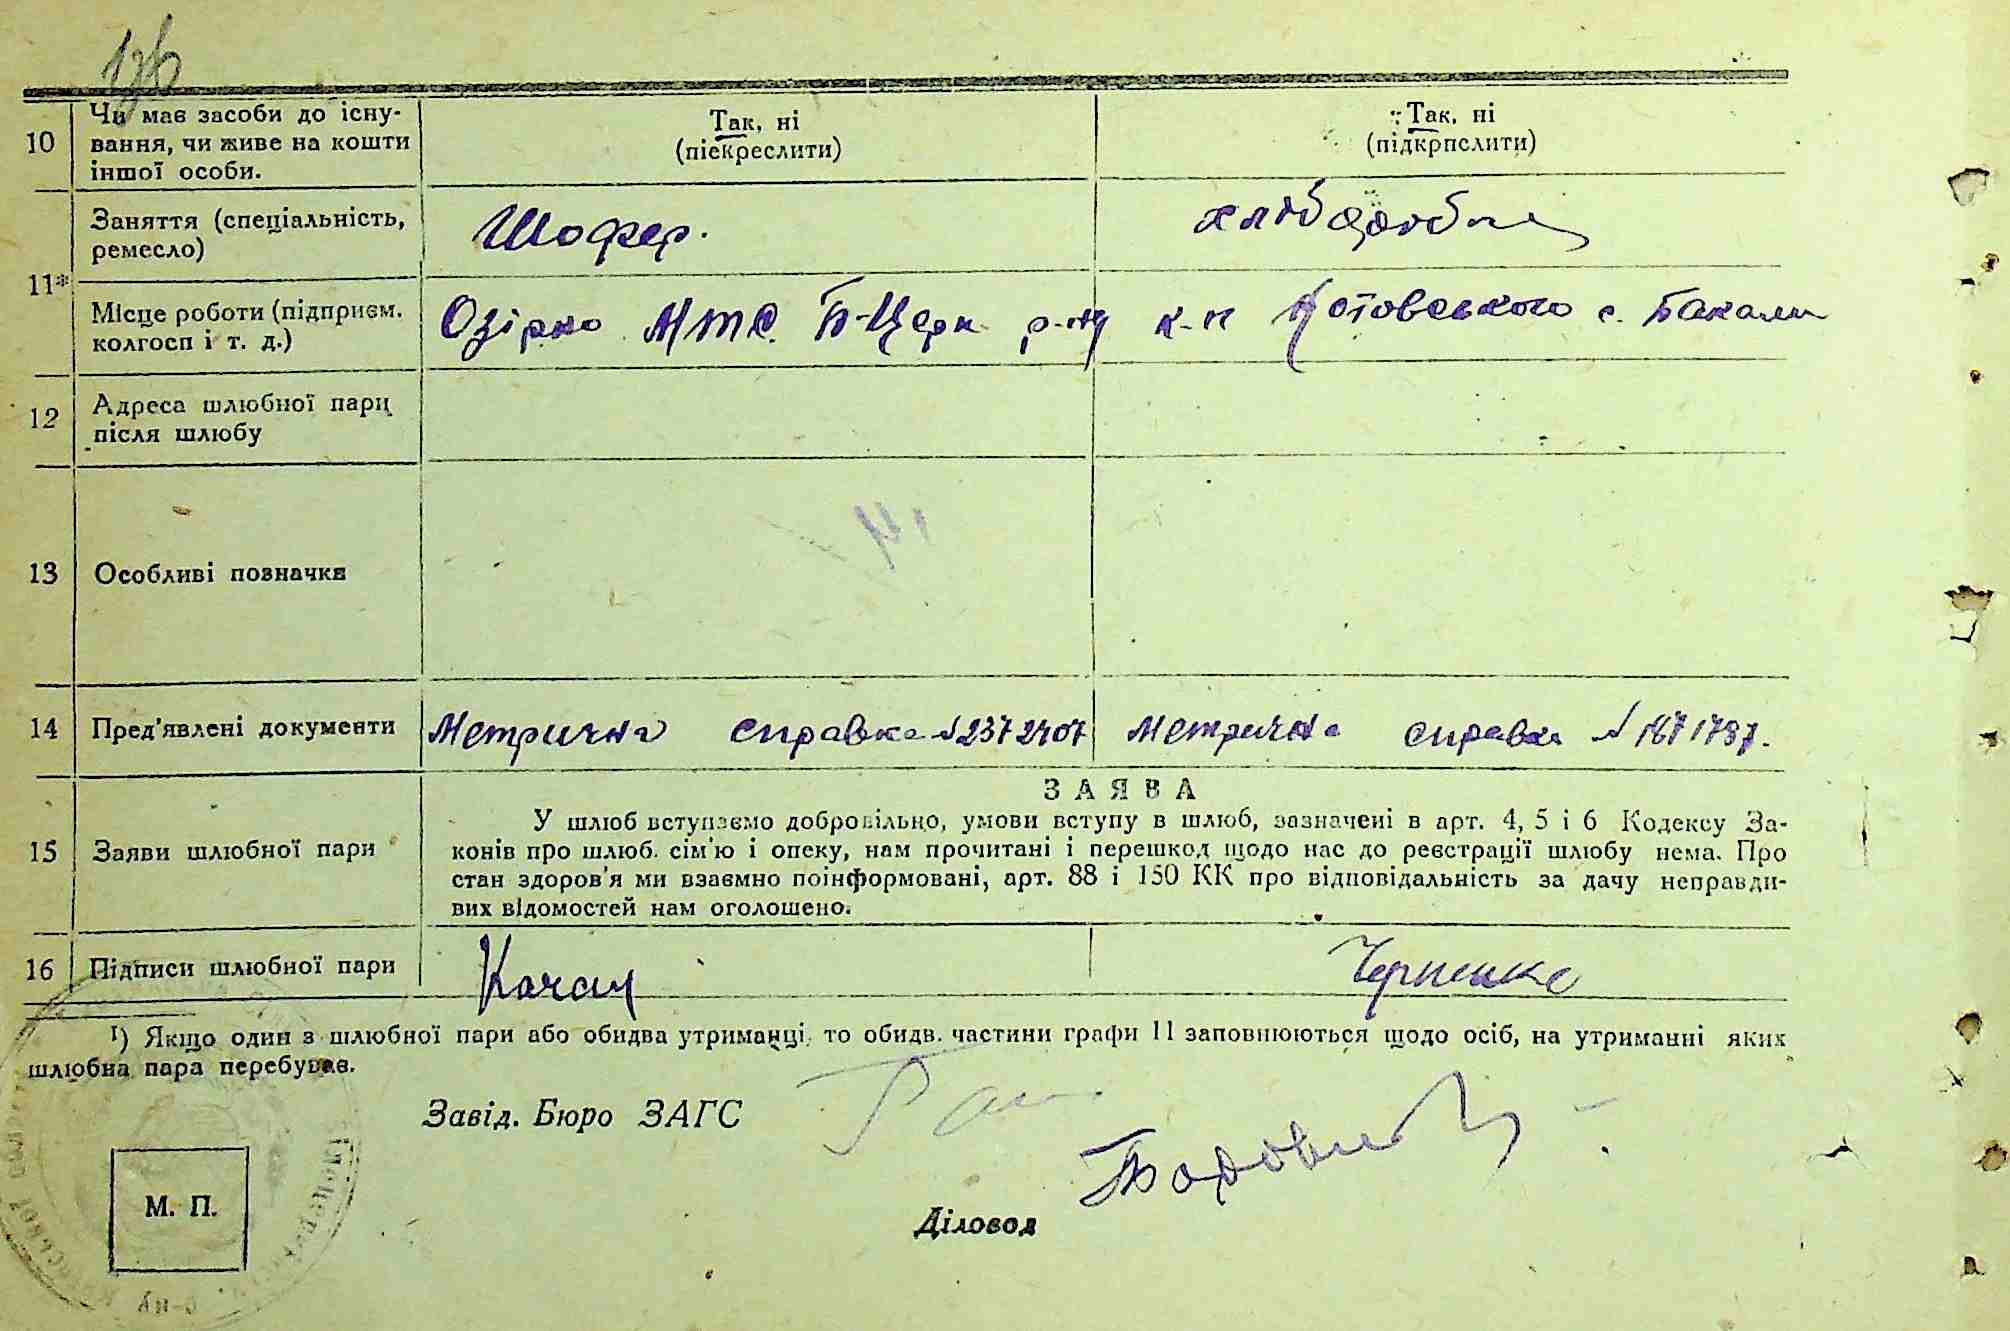 126
10 Чи має засоби до існу-
вання, чи живе на кошти
іншої особи.
Так, ні
(піекреслити)
Так, ні
(підкрпслити)
11*
Заняття (спеціальність,
ремесло)
Шофер.
хлібороб
Місце роботи (підприєм.
колгосп і т. д.)
Озірно МТС. Б-Церк р-ну
к-п Котовського с. Бакали
12 Адреса шлюбної пари
після шлюбу
13 Особливі позначки
14 Пред'явлені документи
Метрична справка №2372407
Метрична справка № 1671787.
15 Заяви шлюбної пари
ЗАЯВА
У шлюб вступаємо добровільно, умови вступу в шлюб, зазначені в арт. 4, 5 і 6 Кодексу За-
конів про шлюб. сім'ю і опеку, нам прочитані і перешкод щодо нас до реєстрації шлюбу нема. Про
стан здоров'я ми взаємно поінформовані, арт. 88 і 150 КК про відповідальність за дачу неправди-
вих відомостей нам оголошено.
16 Підписи шлюбної пари
Качан
Черненко
1) Якщо один з шлюбної пари або обидва утриманці, то обидв. частини графи 11 заповнюються щодо осіб, на утриманні яких
шлюбна пара перебуває.
Завід. Бюро ЗАГС
Діловод
М. П.